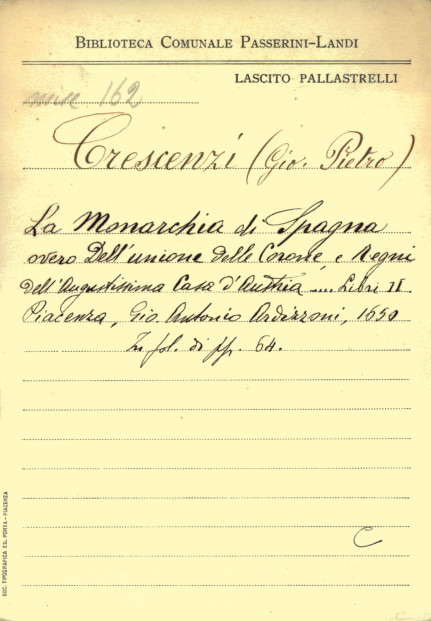 BIBLIOTECA COMUNALE PASSERINI-LANDI
LASCITO PALLASTRELLI
misc 162
Crescenzi (Gio. Pietro)
La Monarchia di Spagna
overo Dell'unione delle Corone, e Regni
dell'Augustissima Casa d'Austria .... Libri II
Piacenza, Gio. Antonio Ardizzoni, 1650
In fol. di pp. 64.
C
SOC. TIPOGRAFICA ED. PORTA - PIACENZA